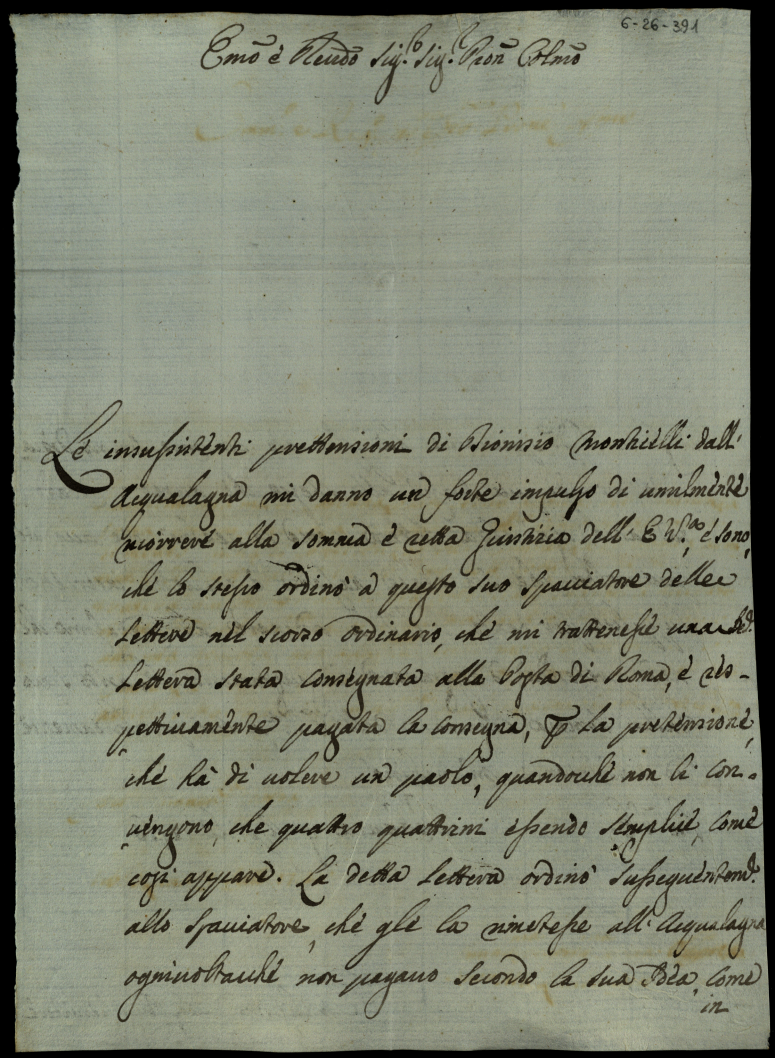 6-26-391
Emo è Revdo Sig.r Sig.r Pron Colmo
Le insussistenti prettensioni di Dionisio Monticelli dall'
Acqualagna mi danno un forte impulso di umilmente
ricorrere alla somma è retta Giustizia dell' E V.ra, é sono,
ché lo stesso ordinò a questo suo Spacciatore delle
Lettere nel scorso ordinario, ché mi trattenesse una
Lettera stata consegnata alla Posta di Roma, è ris-
pettivamente pagata la consegna, la pretensione,
ché hà di volere un paolo, quandoché non li con-
vengono, che quattro quattrini essendo semplice, come
così appare. La detta Lettera ordinò sussequentem.e
allo Spacciatore, ché glé la rimetesse all' Acqualagna
ogni volta ché non pagavo secondo la sua Idéa, come
in